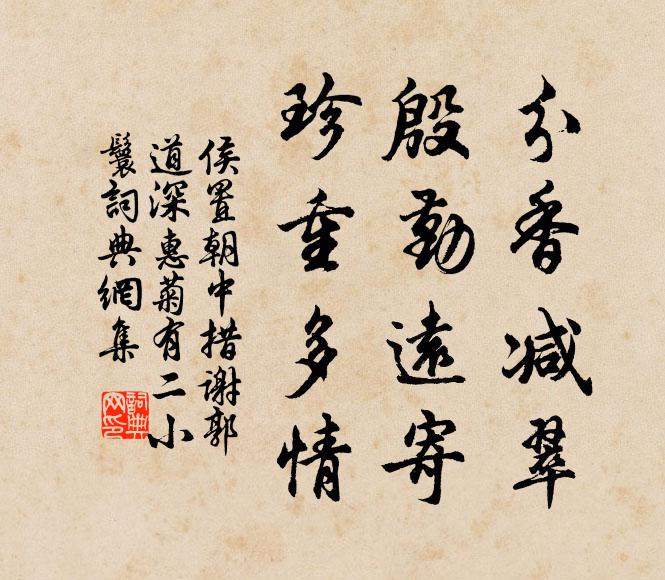 分香減翠
殷勤遠寄
珍重多情
侯寘朝中措謝郭
道深惠菊有二小
鬟詞典網集
詞典
网印